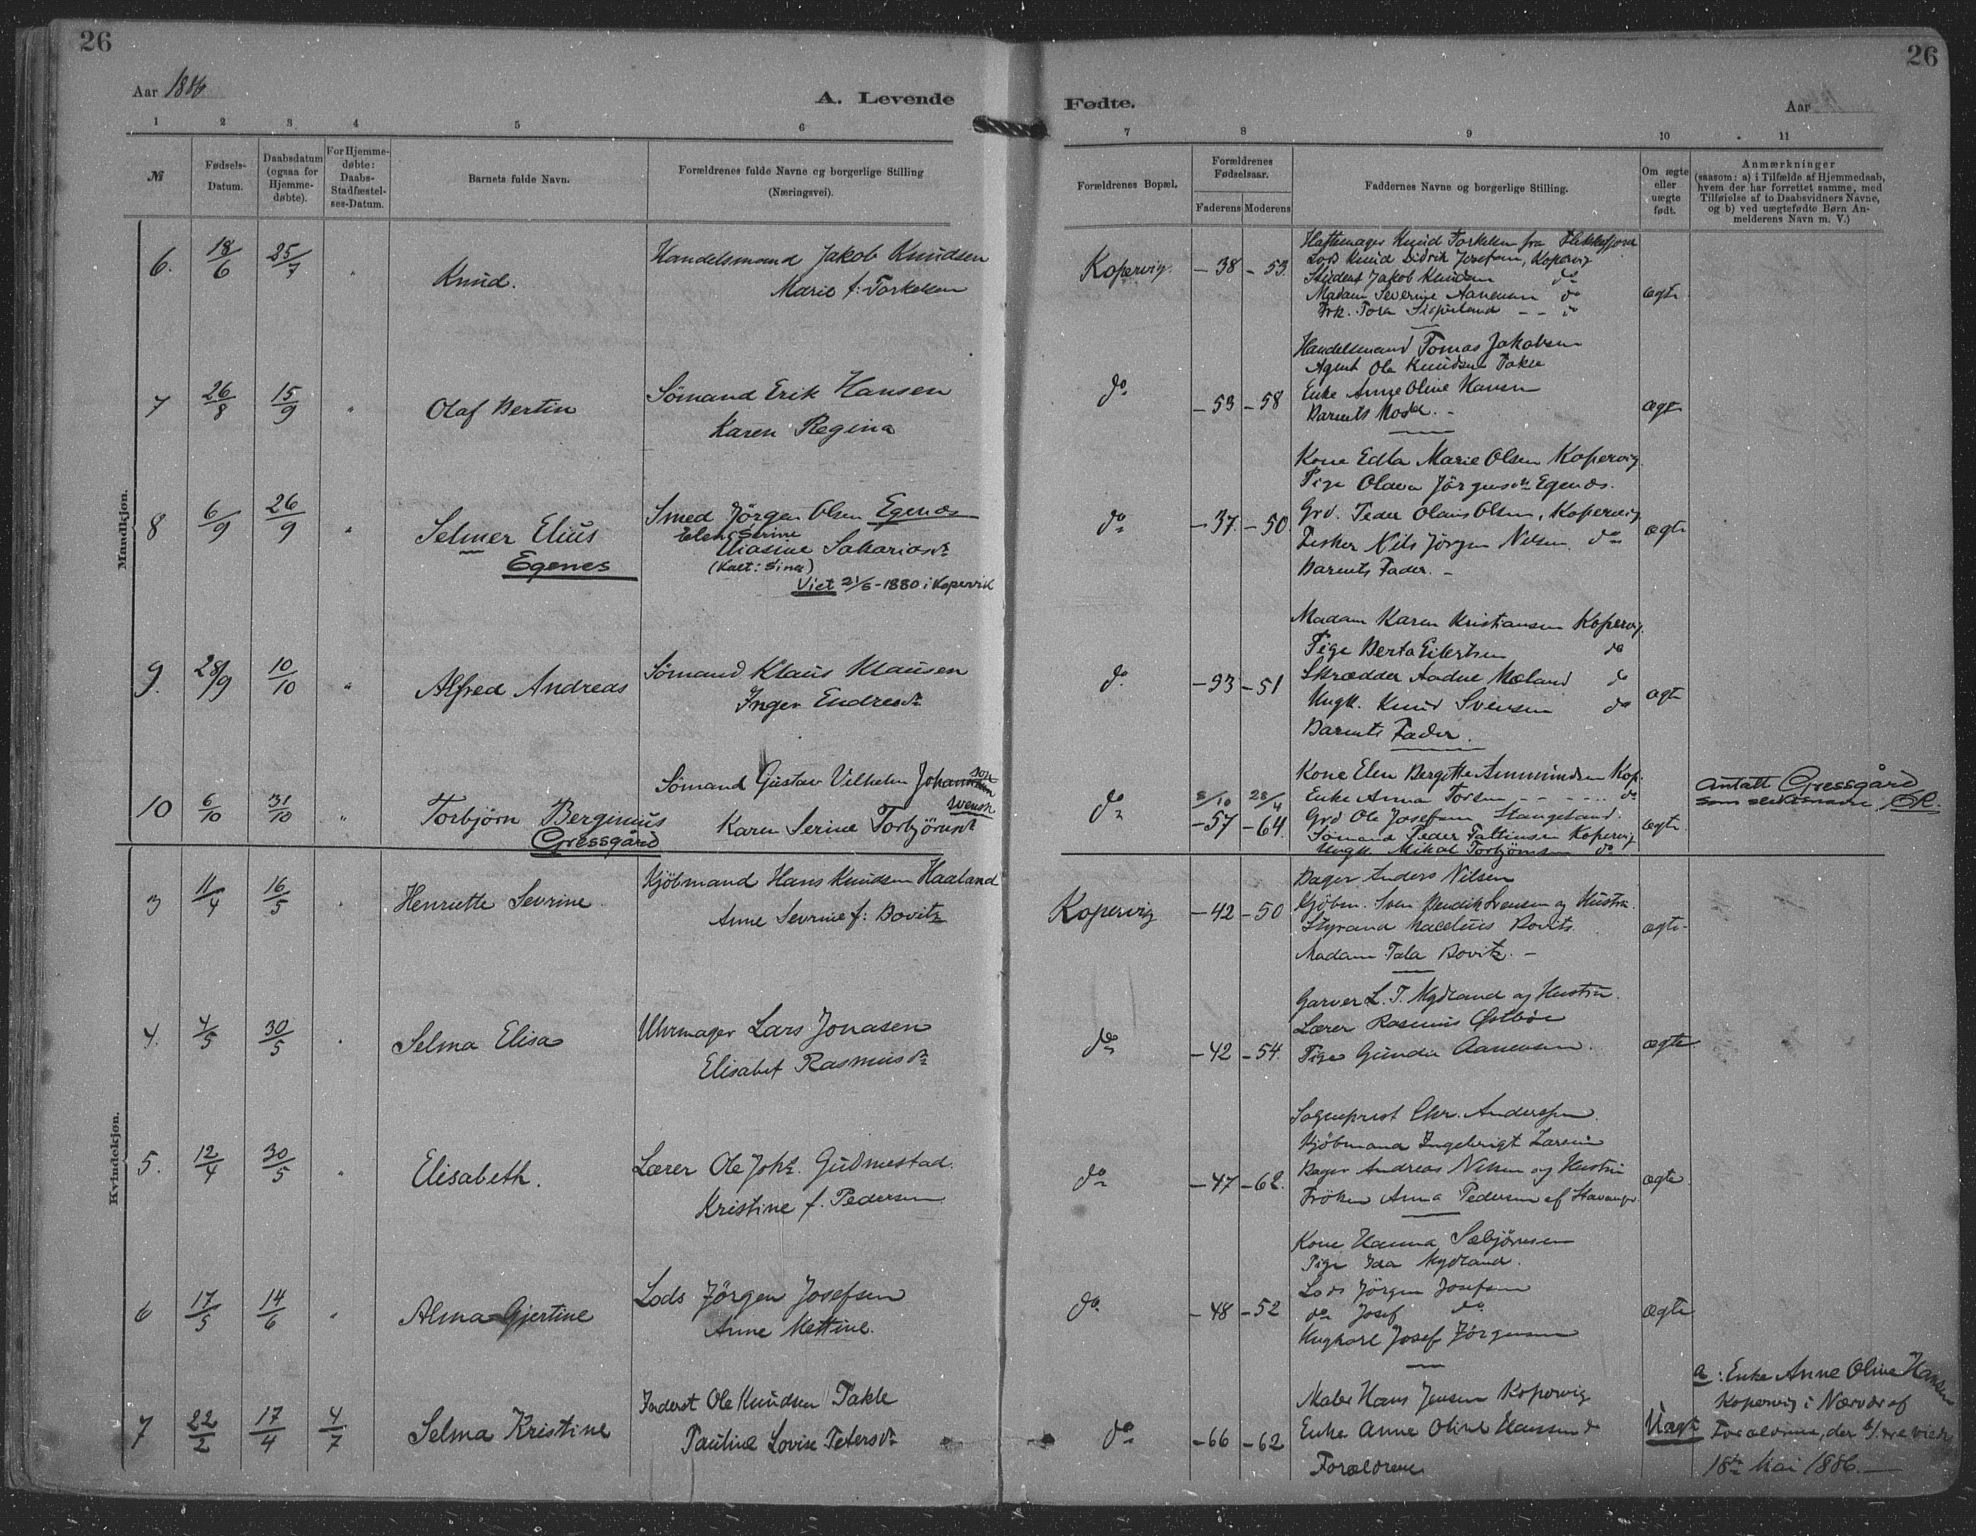 26
26
Aar 1886
A. Levende
Fødte.
Aar
1 2 3 4 5 6
7 8 9 10 11
№
Fødsels-
Datum.
Daabsdatum
(ogsaa for
Hjemme-
døbte).
For Hjemme-
døbte:
Daabs-
Stadfæstel-
ses-Datum.
Barnets fulde Navn.
Forældrenes fulde Navne og borgerlige Stilling
(Næringsvei).
Forældrenes Bopæl.
Forældrenes
Fødselsaar.
Faderens Moderens
Faddernes Navne og borgerlige Stilling.
Om ægte
eller
uægte
født.
Anmærkninger
(saasom: a) i Tilfælde af Hjemmedaab,
hvem der har forrettet samme, med
Tilføielse af to Daabsvidners Navne,
og b) ved uægtefødte Børn An-
melderens Navn m. V.)
Mandkjøn.
6. 18/6 25/7 "
Knud.
Handelsmand Jakob Knudsen
Marie f: Torkelsen
Kopervig. - 38 - 53
Hattemager Knud Torkelsen fra Flekkefjord
Lods Knud Didrik Josefsen, Kopervig
Student Jakob Knudsen do
Madam Severine Aanensen do
Frk. Tora do
ægte
7 26/8 15/9 "
Olaf Bertin
Sømand Erik Hansen
Karen Regina
do - 53 - 58
Handelsmand Tomas Jakobsen
Agent Ole Knudsen Takle
Enke Anne Oline Hansen
Barnets Moder. -
ægte
8 6/9 26/9 "
Selmer Elius
Egenes
Smed Jørgen Olsen Egenes
Elen Serine
Eliasine Sakariasdr
(kalt: Sina)
Viet 21/6-1880 i Kopervik
do - 37. - 50
Kone Edla Marie Olsen Kopervig.
Pige Olava Jørgensdr Egenæs.
Grd. Peder Olaus Olsen, Kopervig
Fisker Nils Jørgen Nilsen do
Barnets Fader. -
ægte
9. 28/9 10/10 "
Alfred Andreas
Sømand Klaus Klausen
Inger Endresdr
do. - 53 - 51
Madam Karen Kristiansen Kopervig.
Pige Berta Eilertsen do
Skrædder Aadne Mæland do
Ungk. Knud Svensen do
Barnets Fader.
ægte
10 6/10 31/10 "
Torbjørn Berginius
Gressgård
Sømand Gustav Vilhelm Johansson
svensk
Karen Serine Torbjørnsdr
do 8/10 28/4
- 57 - 64
Kone Elen Bergitte Ammundsen Kop.
Enke Anna Torsen - - - do
Grd Ole Josefsen Stangeland.
Sømand Peder Kopervig
Ungk. Mikal Torbjørnsen do
ægte
antatt Gressgård
som slektsnavn
Kvindekjøn.
3 11/4 16/5 "
Henriette Sevrine.
Kjøbmand Hans Knudsen Haaland
Anne Sevrine f: Bovitz
Kopervig - 42 - 50
Bager Anders Nilsen
Kjøbm. Sven Svensen og Hustru.
Styrmand Bovitz
Madam Tala Bovitz. -
ægte
4. 4/5 30/5 "
Selma Elisa
Uhrmager Lars Jonasen
Elisabet Rasmusdr
do - 42 - 54.
Garver L. T. Mydland og Hustru.
Lærer Rasmus Østbøe
Pige Gunda Aanensen.
ægte
5. 12/4 30/5 "
Elisabeth.
Lærer Ole Johs. Gudmestad.
Kristine f. Pedersen
do - 47 - 62.
Sogneprest Chr. Anderssen.
Kjøbmand Ingebrigt Larsen
Bager Andreas Nilsen og Hustru
Frøken Anna Pedersen af Stavanger
ægte.
6 17/5 14/6 "
Alma Gjertine
Lods Jørgen Josefsen
Anne Mettine.
do - 48 - 52
Kone Hanna Sæbjørnsen
Pige Ida Mydland.
Lods Jørgen Josefsen
do Josef do
Ungkarl Josef Jørgensen
ægte
7 22/2 17/4 4/7
Selma Kristine
Inderst Ole Knudsen Takle
Pauline Lovise Petersdr
do - 66 - 62
Maler Hans Jensen Kopervig
Enke Anne Oline Hansen do
Forældrene
Uægte
a: Enke Anne Oline Hansen
Kopervig i Nærvær af
Forældrene, der viede
18de Mai 1886. -